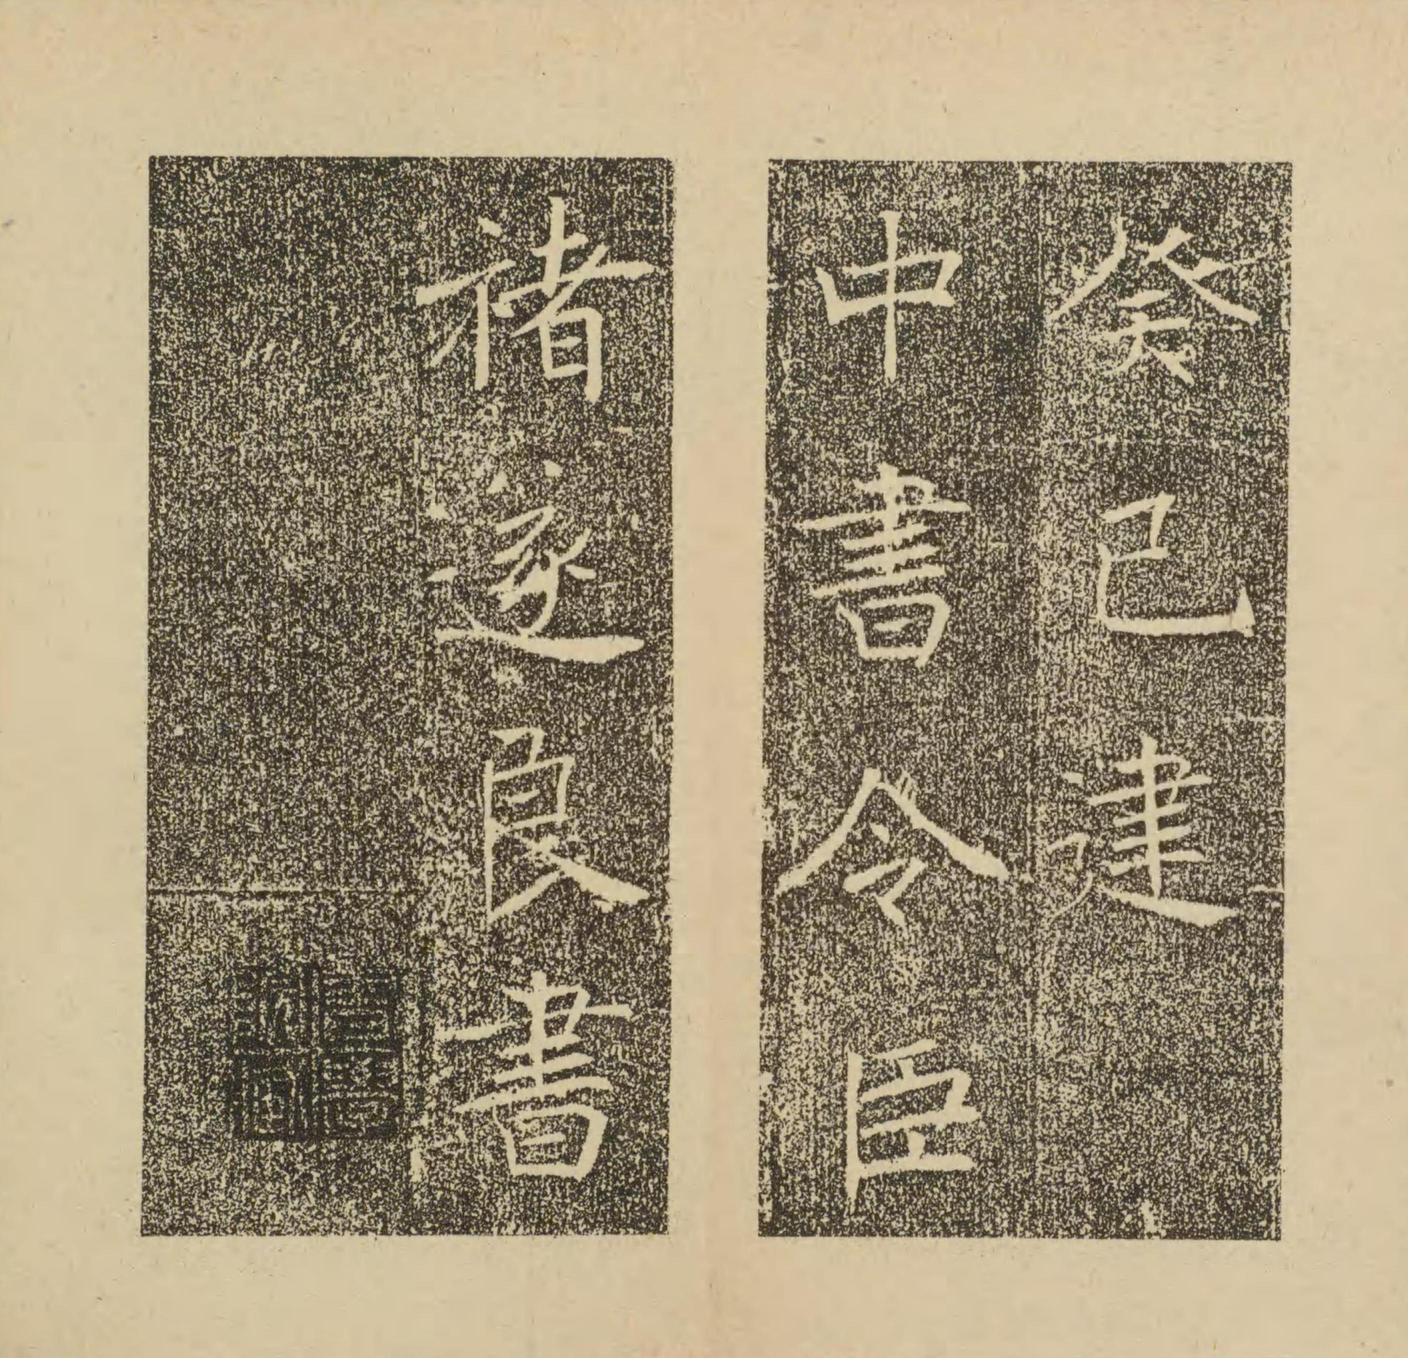 癸巳建
中書令臣
褚遂良書